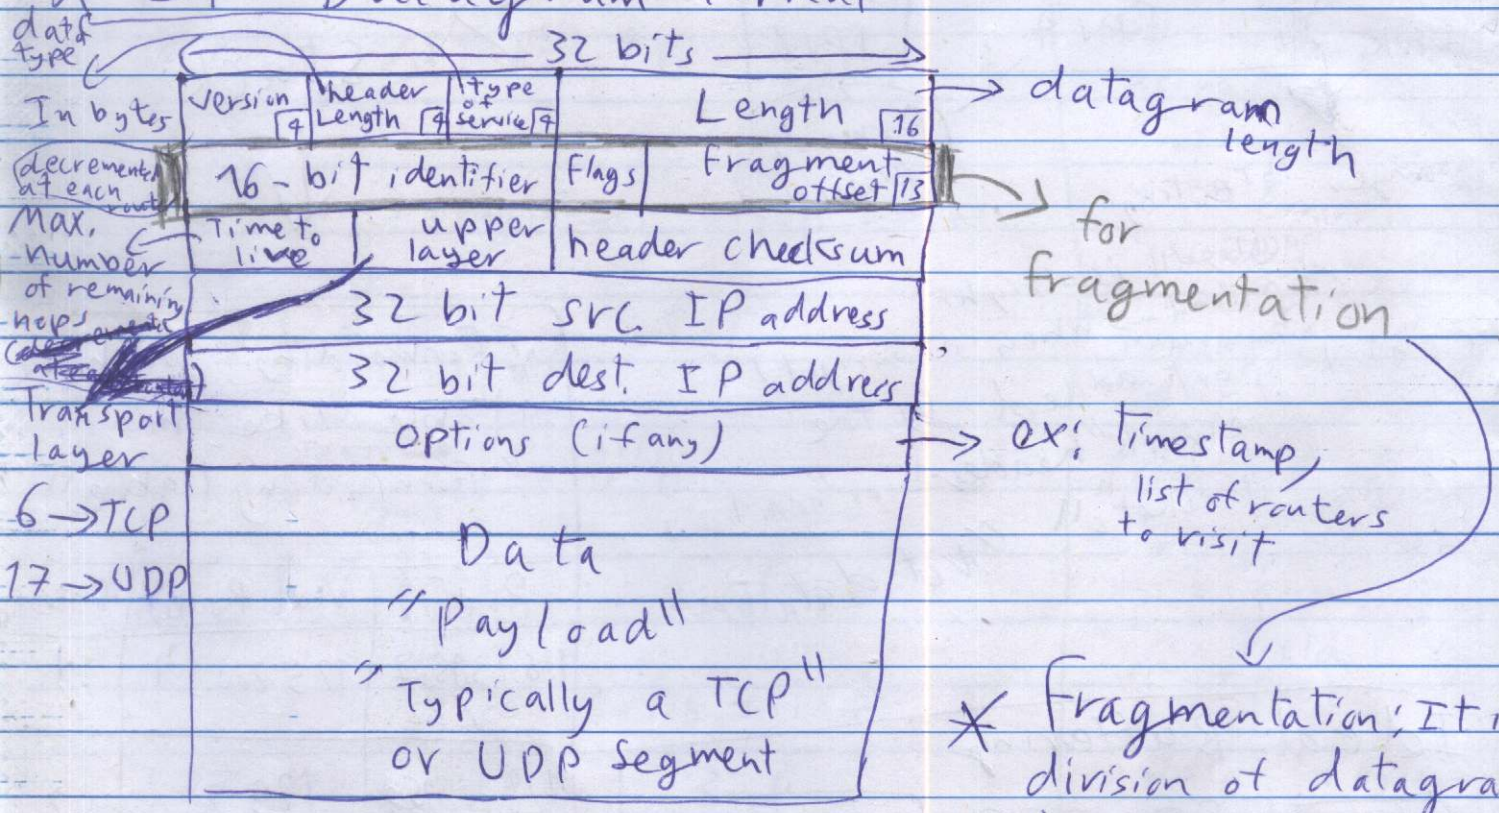 Datagram
data
type
32 bits
In bytes
version 4
header Length 4
type of service 4
Length 16
datagram
length
(decremented
at each
16-bit identifier
Flags
Fragment
offset 13
for
fragmentation
Max.
number
of remaining
hops
Time to
live
upper
layer
header checksum
32 bit src. IP address
32 bit dest. IP address
Transport
layer
options (if any)
ex: timestamp,
list of routers
to visit
6 → TCP
17 → UDP
Data
"Payload"
"Typically a TCP"
or UDP segment
* Fragmentation: It
division of datagra